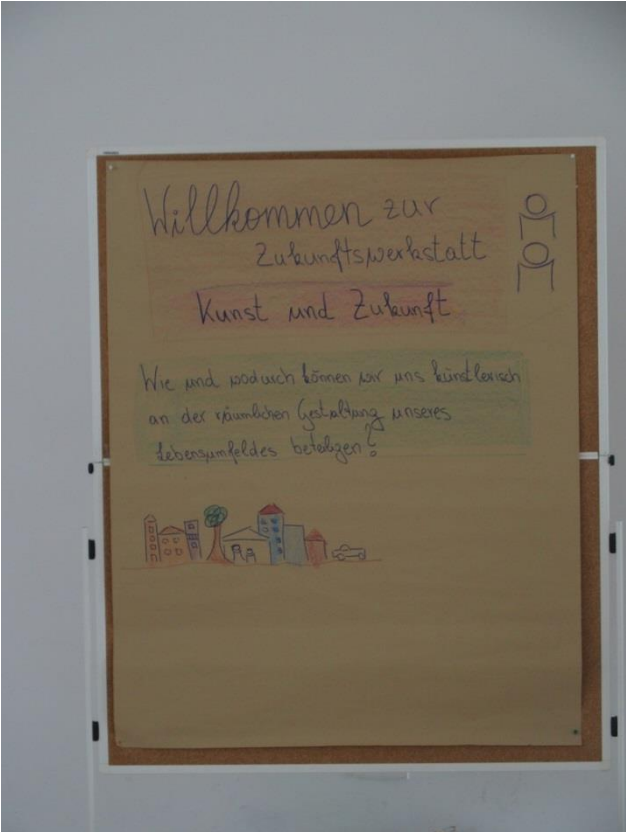 Willkommen zur
Zukunftswerkstatt
Kunst und Zukunft
Wie und wodurch können wir uns künstlerisch
an der räumlichen Gestaltung unseres
Lebensumfeldes beteiligen?